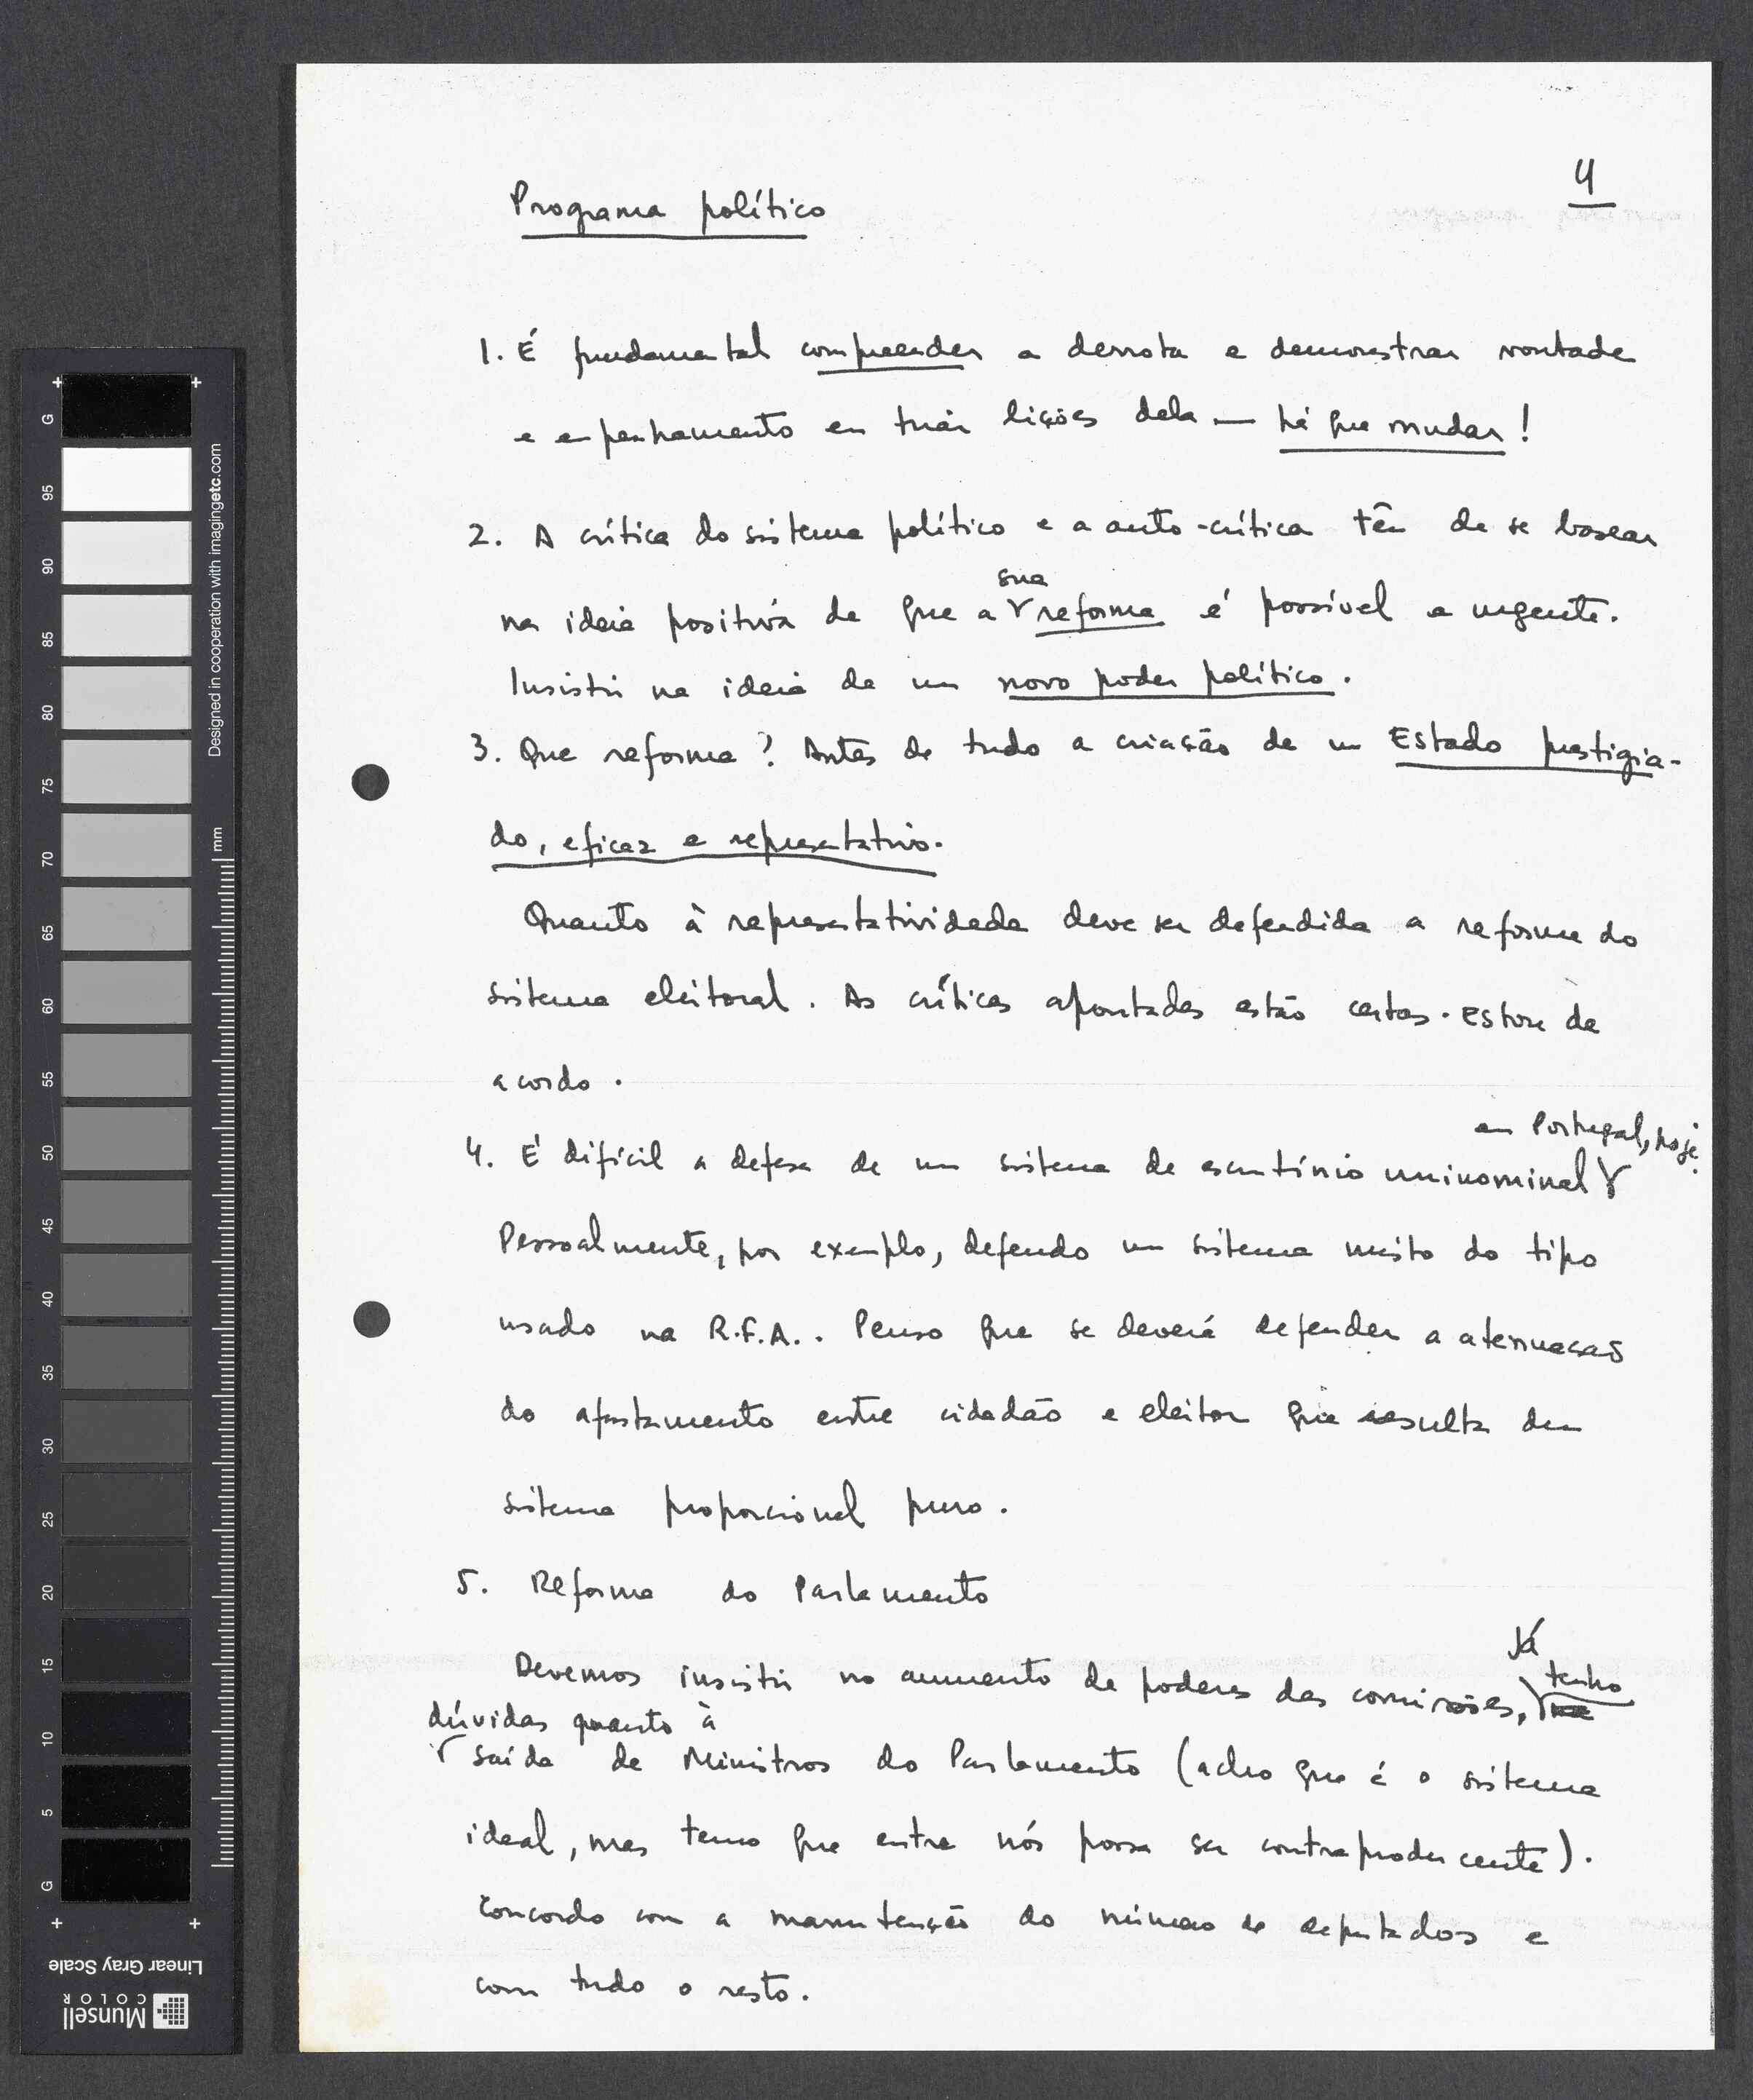 4
Programa político
1. É fundamental compreender a derrota e demonstrar vontade
e empenhamento em tirar lições dela — há que mudar!
2. A crítica do sistema político e a auto-crítica têm de se basear
na ideia positiva de que a sua reforma é possível e urgente.
Insistir na ideia de um novo poder político.
3. Que reforma? Antes de tudo a criação de um Estado prestigia-
do, eficaz e representativo.
Quanto à representatividade deve ser defendida a reforma do
sistema eleitoral. As críticas apontadas estão certas. Estou de
acordo.
4. É difícil a defesa de um sistema de escrutínio uninominal em Portugal, hoje.
Pessoalmente, por exemplo, defendo um sistema misto do tipo
usado na R.F.A.. Penso que se deverá defender a atenuação
do afastamento entre cidadão e eleitor que resulta dum
sistema proporcional puro.
5. Reforma do Parlamento
Devemos insistir no aumento de poderes das comissões, Já tenho
dúvidas quanto à saída de Ministros do Parlamento (acho que é o sistema
ideal, mas temo que entre nós possa ser contraproducente).
Concordo com a manutenção do número de deputados e
com tudo o resto.
Designed in cooperation with imagingetc.com
mm
G 95 90 85 80 75 70 65 60 55 50 45 40 35 30 25 20 15 10 5 G
Linear Gray Scale
Munsell
COLOR